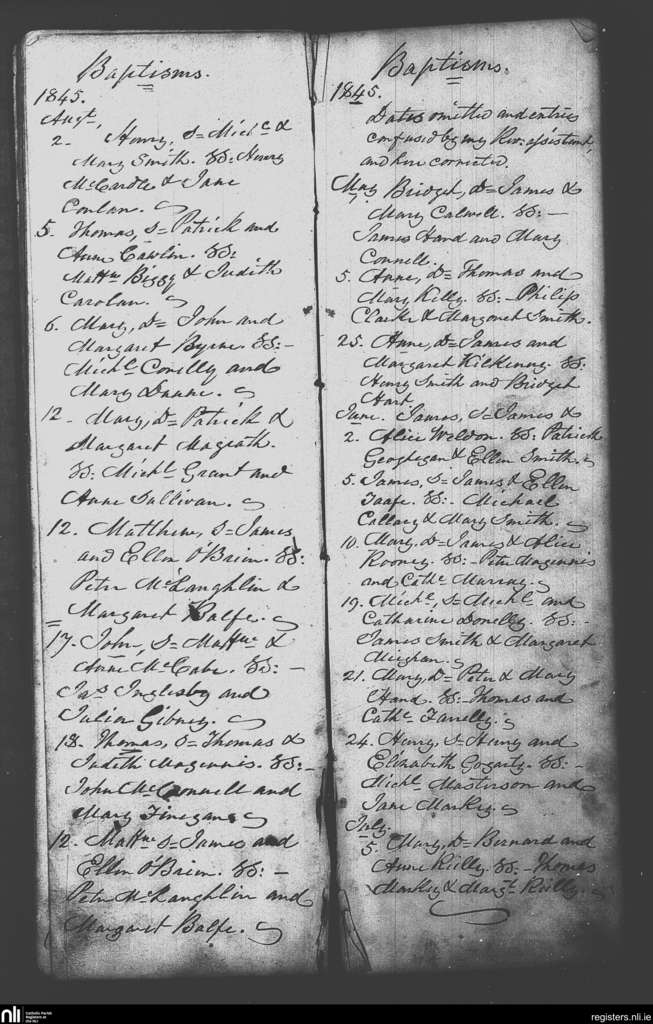 Baptisms.
1845.
Augt.
2. Henry, S= Michl. &
Mary Smith. SS: Henry
McCardle & Jane
Conlan.
5. Thomas, S= Patrick and
Anne Cawlin. SS:
Mattw. Biggy & Judith
Carolan.
6. Mary, D= John and
Margaret Byrne. SS:-
Michl. Conilly and
Mary Dunne.
12. Mary, D= Patrick &
Margaret Magrath.
SS: Michl. Grant and
Anne Sullivan.
12. Matthew, S= James
and Ellen O'Briem. SS:
Peter McLaughlin &
Margaret Balfe.
17. John, S= Mattw. &
Anne McCabe. SS:-
Jas. Inglesby and
Julia Gibney.
18. Thomas, S= Thomas &
Judith Magennis. SS:-
John McConnell and
Mary Finegan
12. Mattw. S= James and
Ellen O'Briem. SS:-
Peter McLaughlin and
Margaret Balfe.
Baptisms.
1845.
Dates omitted and entries
confused by my Rev. assistant,
and here corrected.
May Bridget, D= James &
1, Mary Calwell. SS:-
James Hand and Mary
Connell.
5. Anne, D= Thomas and
Mary Kelly. SS:- Philip
Clarke & Margaret Smith.
25. Anne, D= James and
Margaret Kilkenny. SS:
Henry Smith and Bridget
Hart
June. James, S= James &
2. Alice Weldon. SS: Patrick
Geoghegan & Ellen Smith.
5. James, S= James & Ellen
Taafe. SS:- Michael
Callary & Mary Smith.
10. Mary, D= James & Alice
Rooney. SS:- Peter Magennis
and Cathe. Murray.
19. Michl., S= Michl. and
Catharine Donelly. SS:-
James Smith & Margaret
Mieghan.
21. Mary, D= Peter & Mary
Hand. SS:- Thomas and
Cathe. Farrelly.
24. Henry, S= Henry and
Elizabeth Gogarty. SS:-
Michl. Masterson and
Jane Markey.
July.
5. Mary, D= Bernard and
Anne Reilly. SS:- Thomas
Markey & Margt. Reilly.
nli
Catholic Parish
Registers at
the NLI
registers.nli.ie